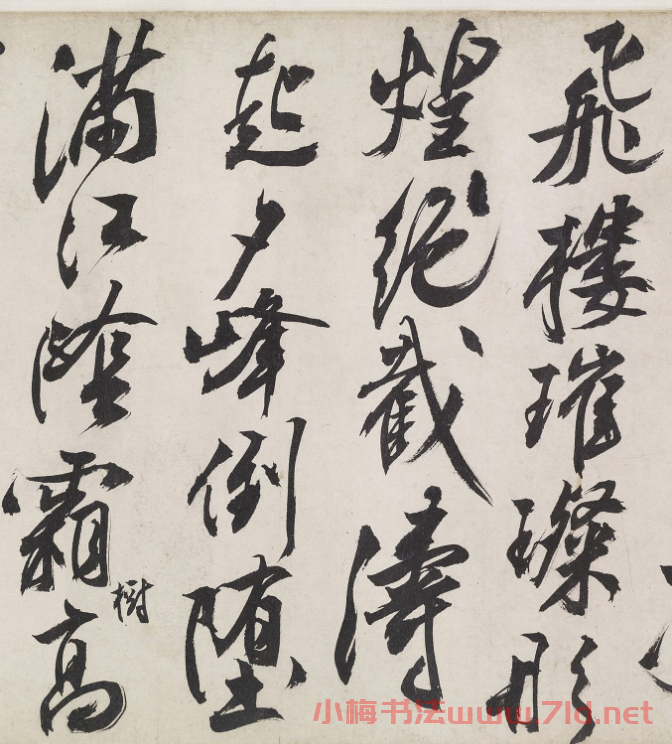 飛樓璀璨彤
煌絶截濤
起夕峰倒堕
滿江陰霜樹高
小梅书法www.7ld.net